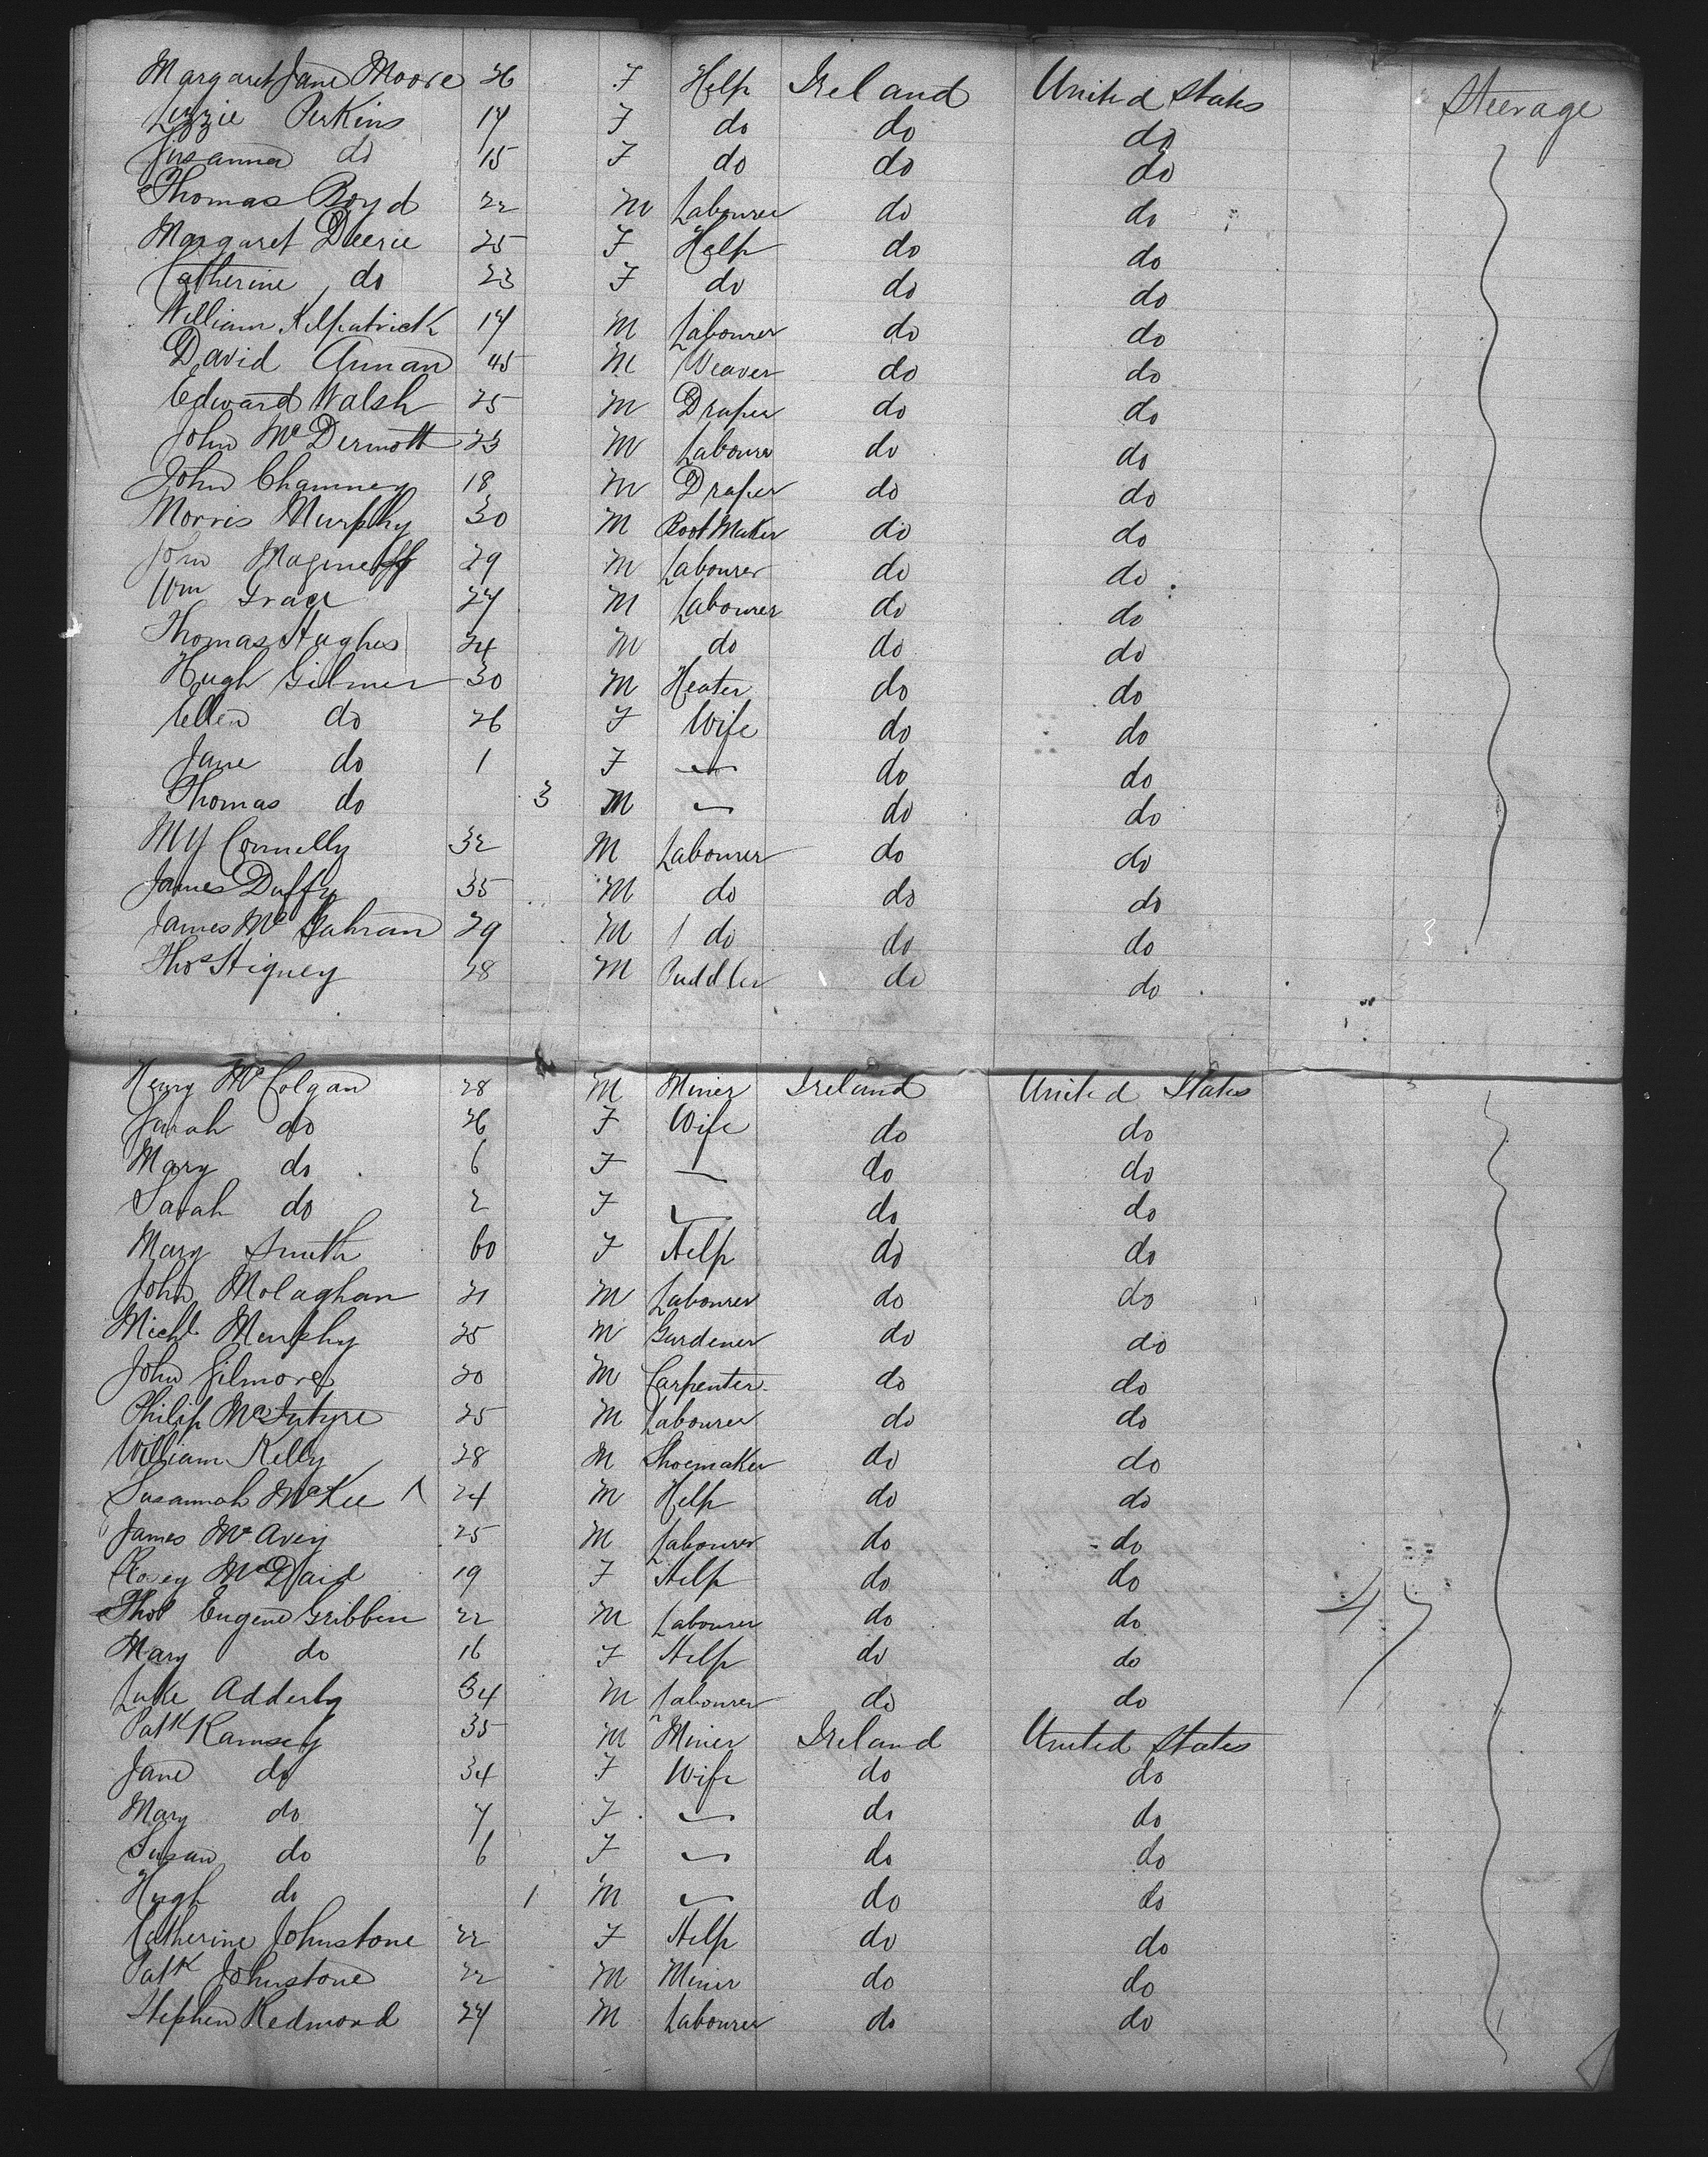 Margaret Jane Moore 26 F Help Ireland United States Steerage
Lizzie Perkins 17 F do do do
Susanna do 15 F do do do
Thomas Boyd 22 M Labourer do do
Margaret Deerie 25 F Help do do
Catherine do 23 F do do do
William Kilpatrick 17 M Labourer do do
David Annan 45 M Weaver do do
Edward Walsh 25 M Draper do do
John McDermott 23 M Labourer do do
John Chamney 18 M Draper do do
Morris Murphy 30 M Boot Maker do do
John 29 M Labourer do do
Wm Grace 27 M Labourer do do
Thomas Hughes 24 M do do do
Hugh Gilmer 30 M Heater do do
Ellen do 26 F Wife do do
Jane do 1 F — do do
Thomas do 3 M — do do
My Connelly 32 M Labourer do do
James Duffy 35 M do do do
James McGahran 29 M do do do
Thos Higney 28 M Puddler do do
Henry McColgan 28 M Miner Ireland United States
Sarah do 26 F Wife do do
Mary do 6 F — do do
Sarah do 2 F — do do
Mary Smith 60 F Help do do
John Molaghan 21 M Labourer do do
Michl Murphy 25 M Gardener do do
John Gilmore 20 M Carpenter do do
Philip McIntyre 25 M Labourer do do
William Kelly 28 M Shoemaker do do
Susannah McKee 24 M Help do do
James McAvey 25 M Labourer do do
Rosey McDaid 19 F Help do do
Thos Eugene Gribbin 22 M Labourer do do 47
Mary do 16 F Help do do
Luke Adderly 34 M Labourer do do
Patk Ramsey 35 M Miner Ireland United States
Jane do 34 F Wife do do
Mary do 7 F — do do
Susan do 6 F — do do
Hugh do 1 M — do do
Catherine Johnstone 22 F Help do do
Patk Johnstone 22 M Miner do do
Stephen Redmond 27 M Labourer do do